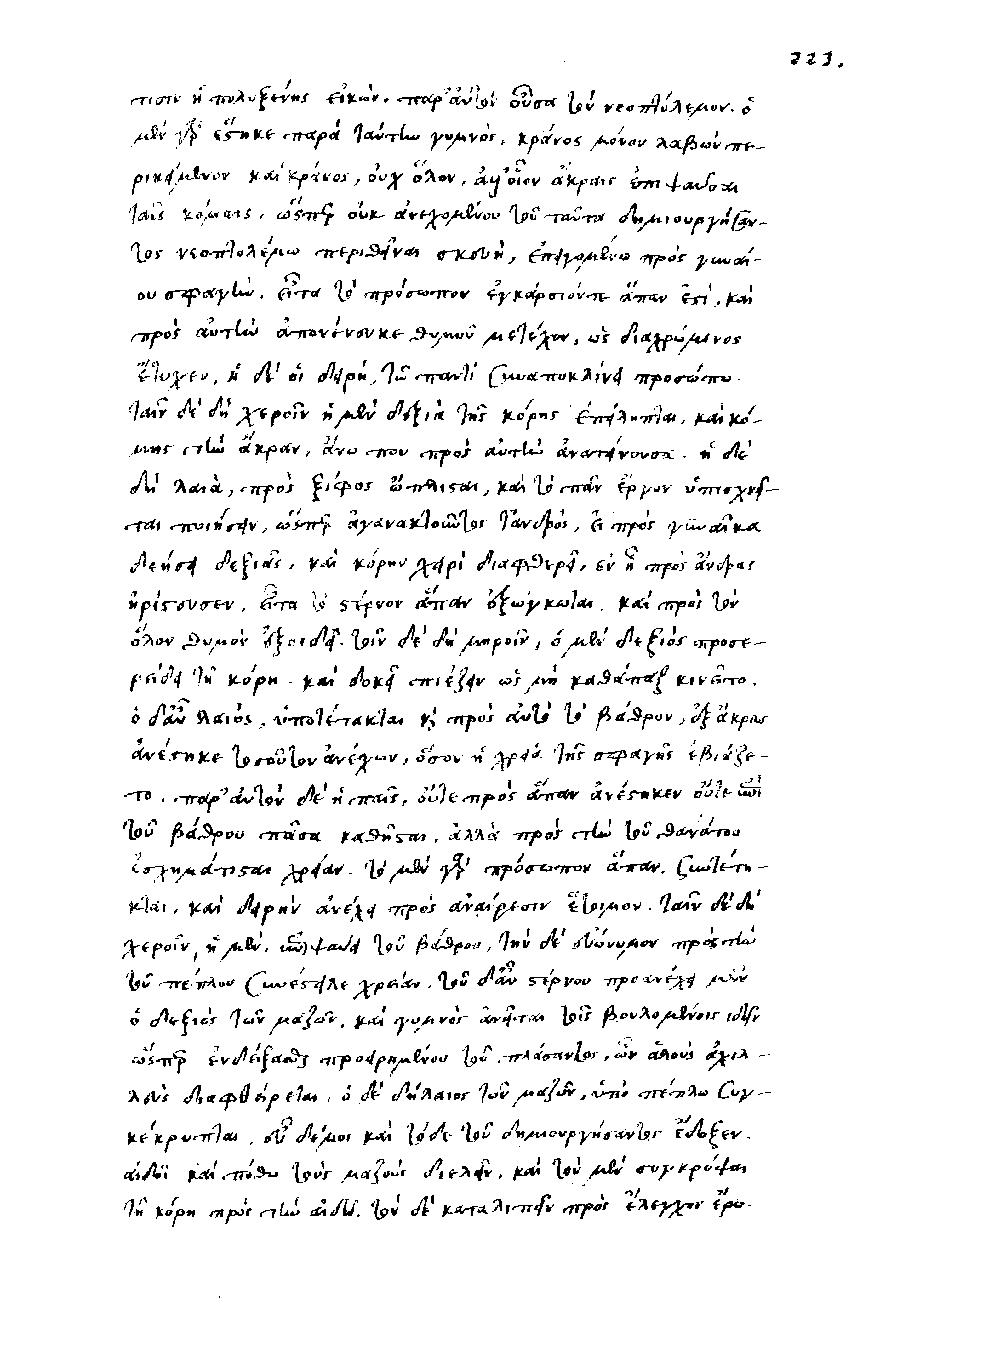 223.
τισιν ἡ πολυξένης εἰκὼν. παρ' αὐτὸν οὖσα τὸν νεοπτόλεμον. ὁ
μὲν γὰρ ἕστηκε παρὰ ταύτην γυμνὸς, κράνος μόνον λαβὼν πε-
ρικείμενον καὶ κράνος, οὐχ ὅλον, ἀλλ' οἷον ἄκραις ἐπιψαῦσαι
ταῖς κόμαις. ὥσπερ οὐκ ἀνεχομένου τοῦ ταῦτα δημιουργήσαν-
τος νεοπτολέμω περιθεῖναι σκευὴν, ἐπειγομένω πρὸς γυναί-
ου σφαγὴν. εἶτα τὸ πρόσωπον ἐγκάρσιόν τε ἅπαν ἐστὶ, καὶ
πρὸς αὐτὴν ἀπονένευκε θυμοῦ μετέχον, ὡς διαχρώμενος
ἔτυχεν, ἡ δέ οἱ δέρη, τῶ παντὶ συναποκλίνει προσώπω.
ταῖν δὲ δὴ χεροῖν ἡ μὲν δεξιὰ τῆς κόρης ἐπείληπται, καὶ κό-
μης τὴν ἄκραν, ἄνω που πρὸς αὐτὴν ἀνατείνουσα. ἡ δὲ
δὴ λαιὰ, πρὸς ξίφος ὥπλισται, καὶ τὸ πᾶν ἔργον ὑπισχνεῖ-
ται ποιήσειν, ὥσπερ ἀγανακτοῦντος τἀνδρὸς, εἰ πρὸς γυναῖκα
δεήσει δεξιᾶς, καὶ κόρην χειρὶ διαφθερεῖ, ἐν ἧ πρὸς ἄνδρας
ἠρίστευσεν. εἶτα τὸ στέρνον ἅπαν ἐξώγκωται, καὶ πρὸς τὸν
ὅλον θυμὸν ἐξοιδεῖ. τοῖν δὲ δὴ μηροῖν, ὁ μὲν δεξιὸς προσε-
ρείδει τῆ κόρη. καὶ δοκεῖ πιέζειν ὡς μὴ καθάπαξ κινεῖτο.
ὁ δ' αὖ λαιὸς, ὑποτέτακται καὶ πρὸς αὐτὸ τὸ βάθρον, ἐξ ἄκρας
ἀνέστηκε τοσοῦτον ἀνέχων, ὅσον ἡ χρεία τῆς σφαγῆς ἐβιάζε-
το. παρ' αὐτὸν δὲ ἡ παῖς, οὔτε πρὸς ἅπαν ἀνέστηκεν οὔτε ἐπὶ
τοῦ βάθρου πᾶσα καθῆσται, ἀλλὰ πρὸς τὴν τοῦ θανάτου
ἐσχημάτισται χρείαν. τὸ μὲν γὰρ πρόσωπον ἅπαν, συντέτη-
κται, καὶ δέρην ἀνέχει πρὸς ἀναίρεσιν ἕτοιμον. ταῖν δὲ δὴ
χεροῖν, ἡ μὲν, ἐπιψαύει τοῦ βάθρου, τὴν δὲ εὐώνυμον πρὸς τὴν
τοῦ πέπλου συνέστειλε χρείαν. τοῦ δ' αὖ στέρνου προανέχει μὲν
ὁ δεξιὸς τῶν μαζῶν, καὶ γυμνὸς ἀνεῖται τοῖς βουλομένοις ἰδεῖν
ὥσπερ ἐνδείξασθαι προῃρημένου τοῦ πλάσαντος, ὧν ἆθλους ἀχιλ-
λεὺς διαφθείρεται, ὁ δὲ δὴ λαιὸς τῶν μαζῶν, ὑπὸ πέπλω συγ-
κέκρυπται, εὖ δέ μοι καὶ τόδε τοῦ δημιουργήσαντος ἔδοξεν.
αἰδοῖ καὶ πόθω τοὺς μαζοὺς διελεῖν, καὶ τὸν μὲν συγκρύψαι
τῆ κόρη πρὸς τὴν αἰδῶ. τὸν δὲ καταλιπεῖν πρὸς ἔλεγχον ἔρω-